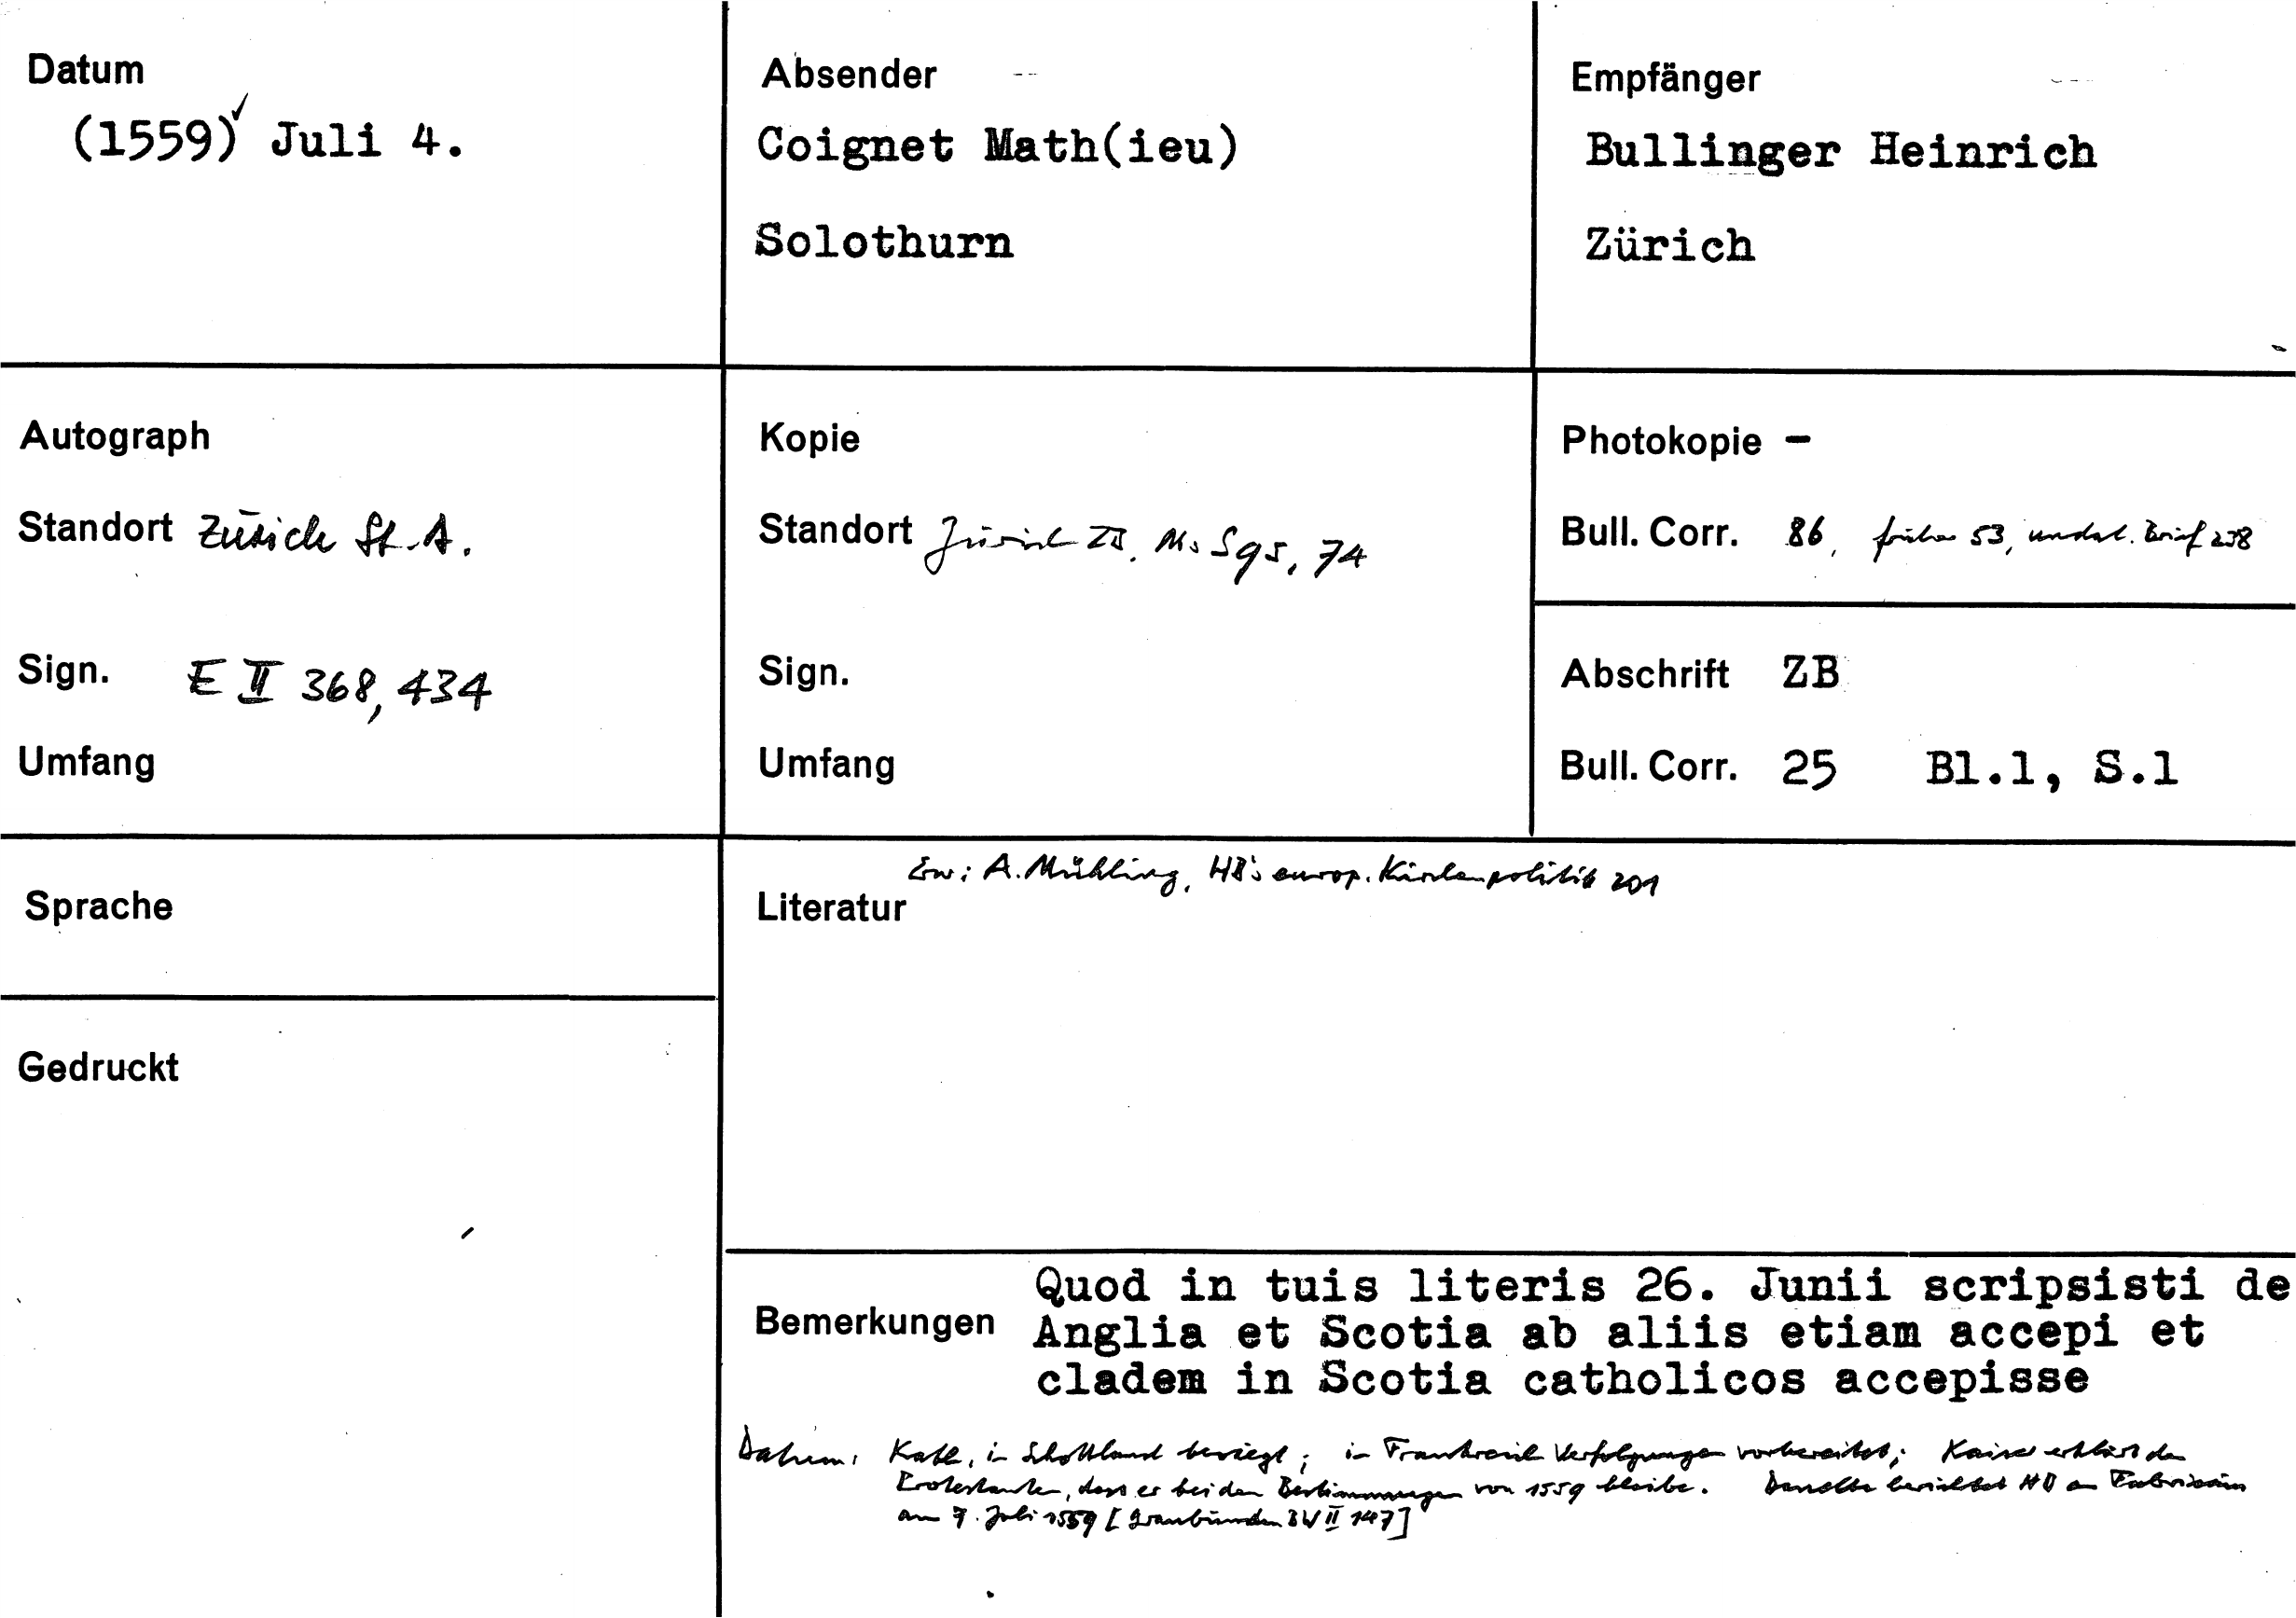 Datum
(1559) Juli 4.
Absender
Coignet Math(ieu)
Solothurn
Empfänger
Bullinger Heinrich
Zürich
Autograph
Standort Zürich St.A.
Sign. E II 368, 434
Umfang
Kopie
Standort Zürich ZB. Ms S 95, 74
Sign.
Umfang
Photokopie –
Bull. Corr. 86, früher 53, undat. Brief 238
Abschrift ZB
Bull. Corr. 25 Bl.1, S.1
Sprache
Gedruckt
Erw: A. Mühling, HB's europ. Kirchenpolitik 201
Literatur
Bemerkungen
Quod in tuis literis 26. Junii scripsisti de
Anglia et Scotia ab aliis etiam accepi et
cladem in Scotia catholicos accepisse
Datum: Kath. in Schottland besiegt; in Frankreich Verfolgungen vorbereitet; Kaiser erklärt den
Protestanten, dass er bei den Bestimmungen von 1559 bleibe. Dasselbe berichtet HB an Fabricius
am 7. Juli 1559 [Graubünden BW II 147]